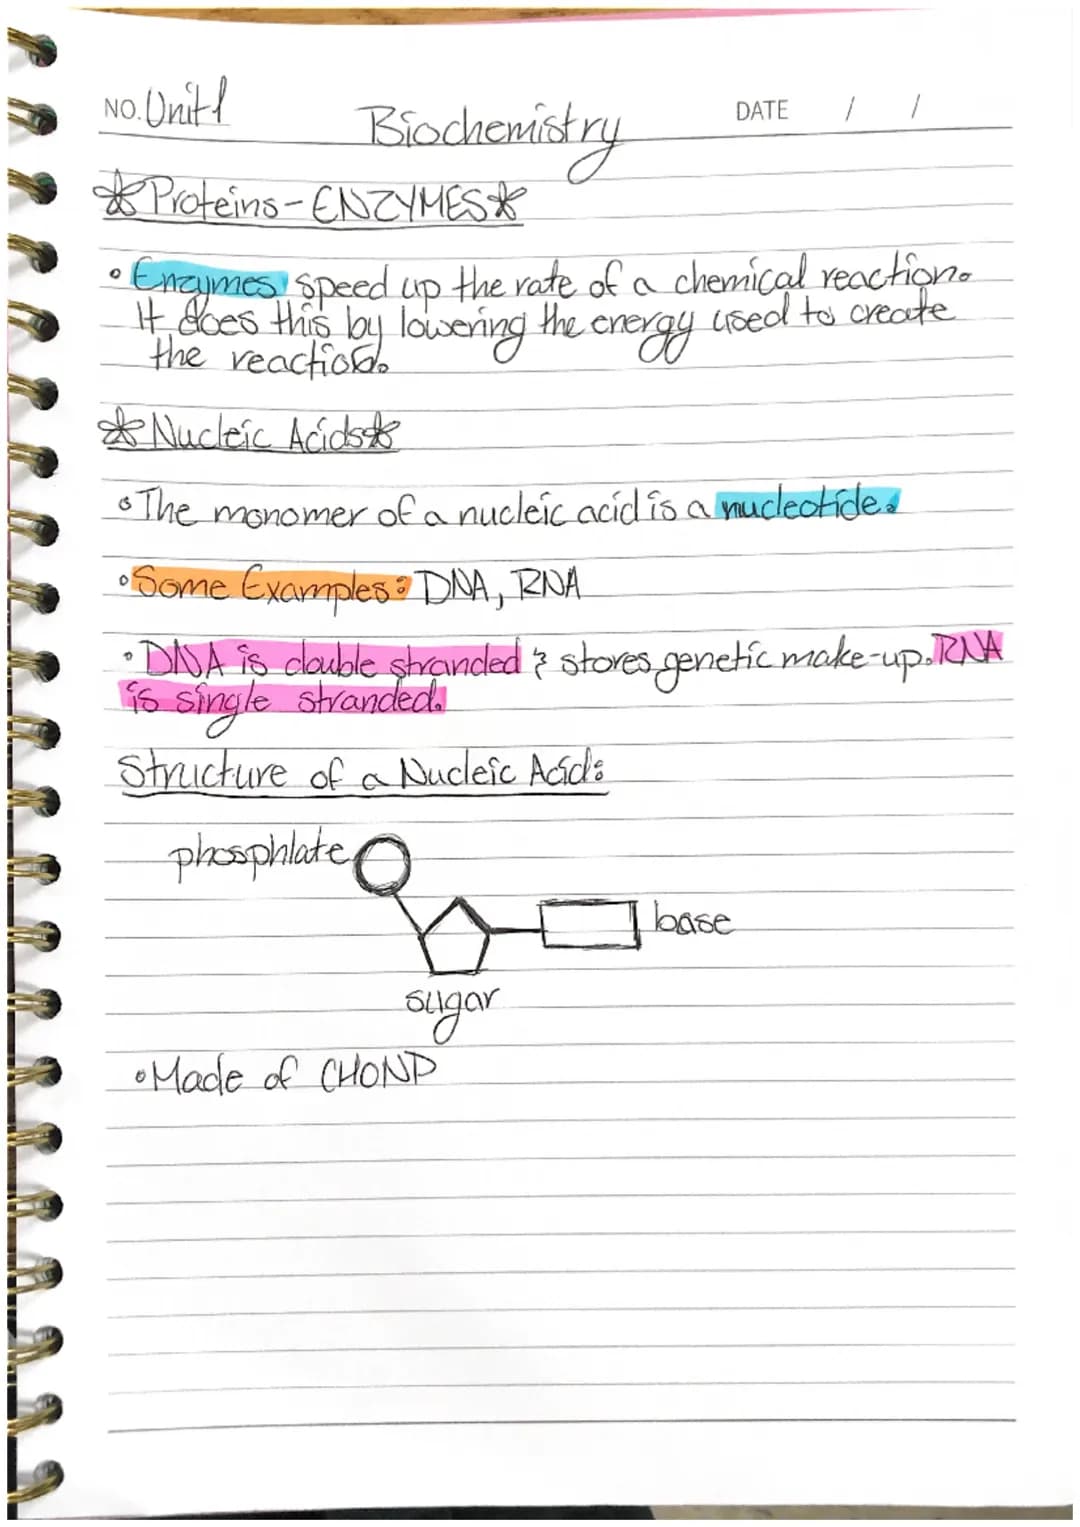 NO. Unit 1 Biochemistry DATE / /
*Proteins - ENZYMES*
• Enzymes speed up the rate of a chemical reaction.
It does this by lowering the energy used to create
the reaction.
*Nucleic Acids*
• The monomer of a nucleic acid is a nucleotide.
• Some Examples: DNA, RNA
• DNA is double stranded & stores genetic make-up. RNA
is single stranded.
Structure of a Nucleic Acid:
phosphlate
base
sugar
• Made of CHONP